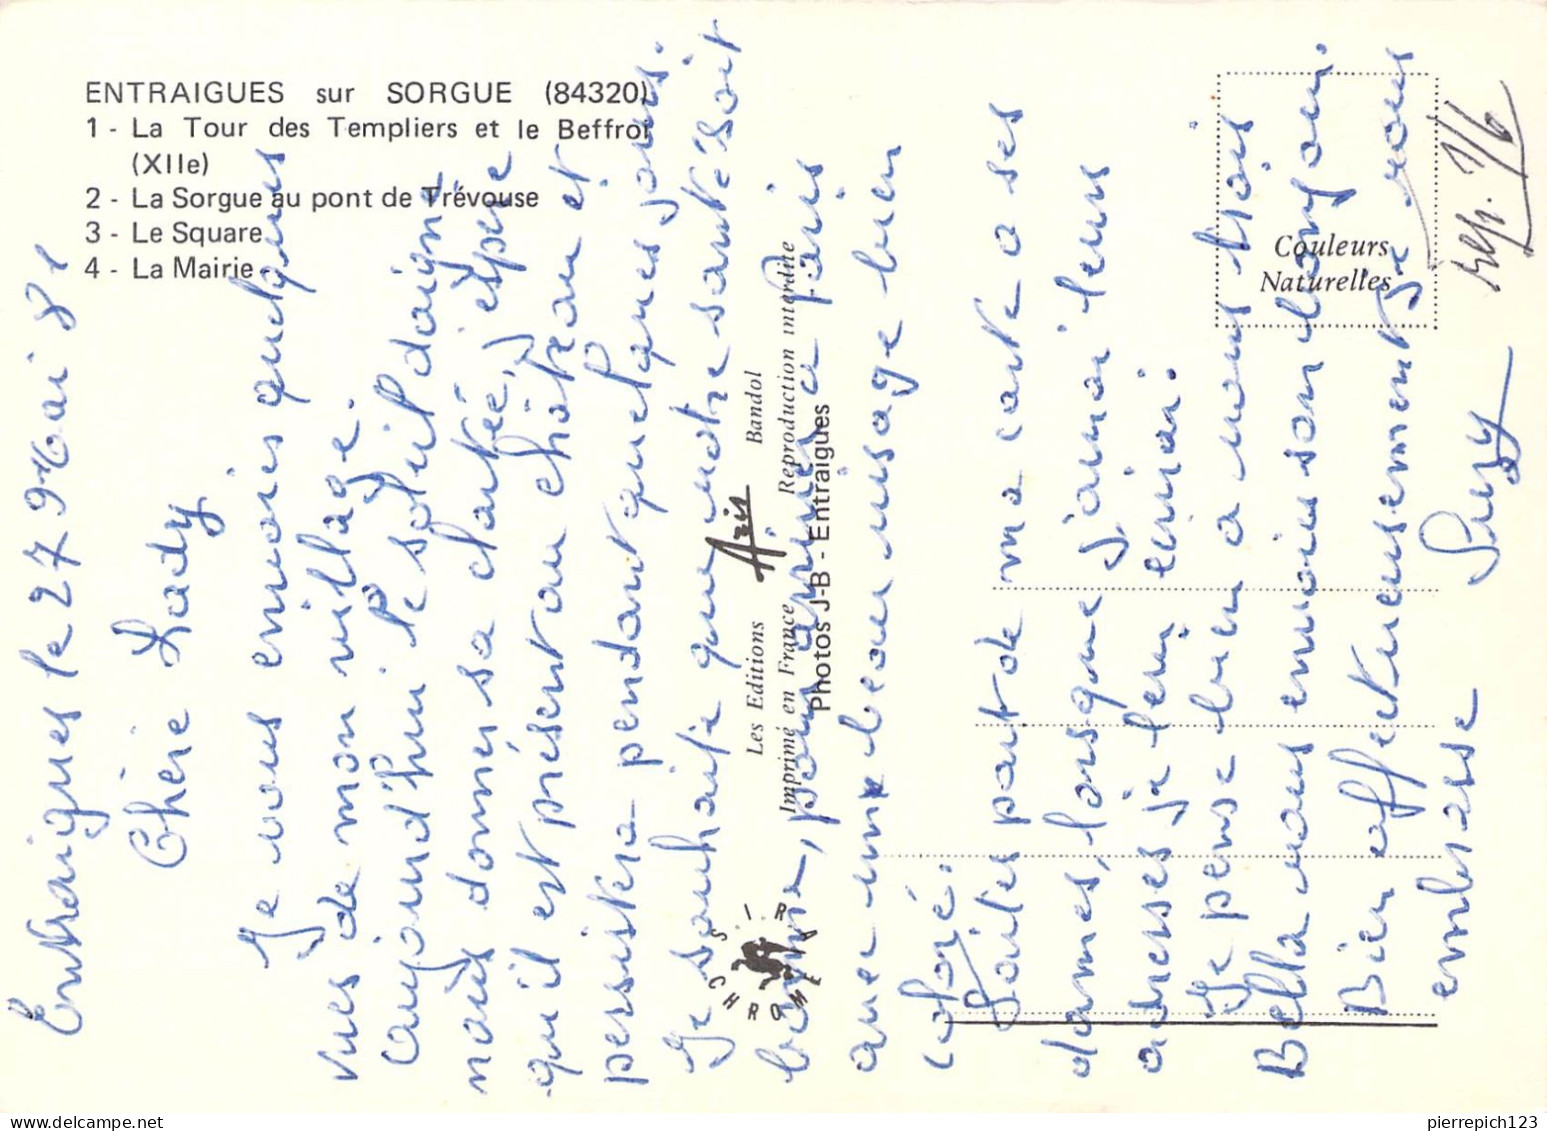 ENTRAIGUES sur SORGUE (84320)
1 - La Tour des Templiers et le Beffroi
(XIIe)
2 - La Sorgue au pont de Trévouse
3 - Le Square
4 - La Mairie
Couleurs
Naturelles
rep. 7/6
Les Editions Aris Bandol
Imprimé en France Reproduction interdite
Photos J-B - Entraigues
IRISCHROME
Entraigues le 27 Mai 81
Chère Lady
Je vous envoies quelques
vues de mon village.
Aujourd'hui le soleil daigne
nous donner sa clartée, j'espère
qu'il est présent au château et
persistera pendant quelques jours.
Je souhaite que votre santé soit
bonne, pour arrivée a Paris
avec un beau visage bien
coloré.
Faites part de ma carte a ses
dames, lorsque j'aurai leurs
adresses je leur écrirai.
Je pense bien a vous trois
Bella vous envoies son bonjour.
Bien affectueusement Je vous
embrasse Suzy
pierrepich123